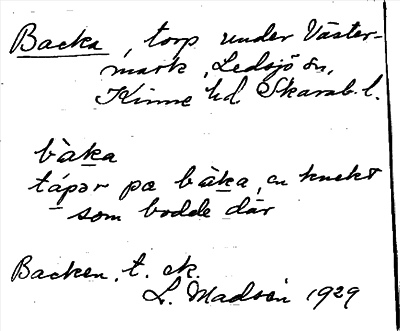 Backa, torp under Väster-
mark, Ledsjö sn,
Kinne hd. Skarab. l.
bàka
tápər pœ bàka, en knekt
som bodde där
Backen, t. ek.
L. Madsén 1929